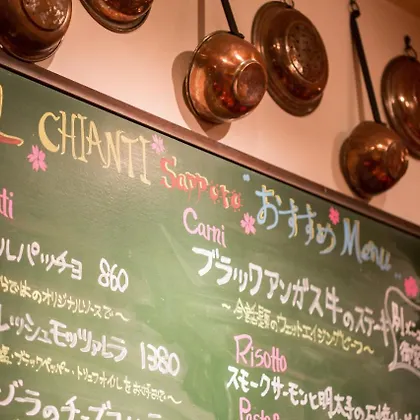 CHIANTI Sapporo
"おすすめ Menu"
ルパッチョ 860
オリジナルソースで〜
レッシュモッツァレラ 1380
ブラックペッパー・トリュフオイルをお好みで〜
Carni
ブラックアンガス牛のステーキ
〜今話題のウェットエイジングビーフ〜
Risotto
スモークサーモンと明太子の